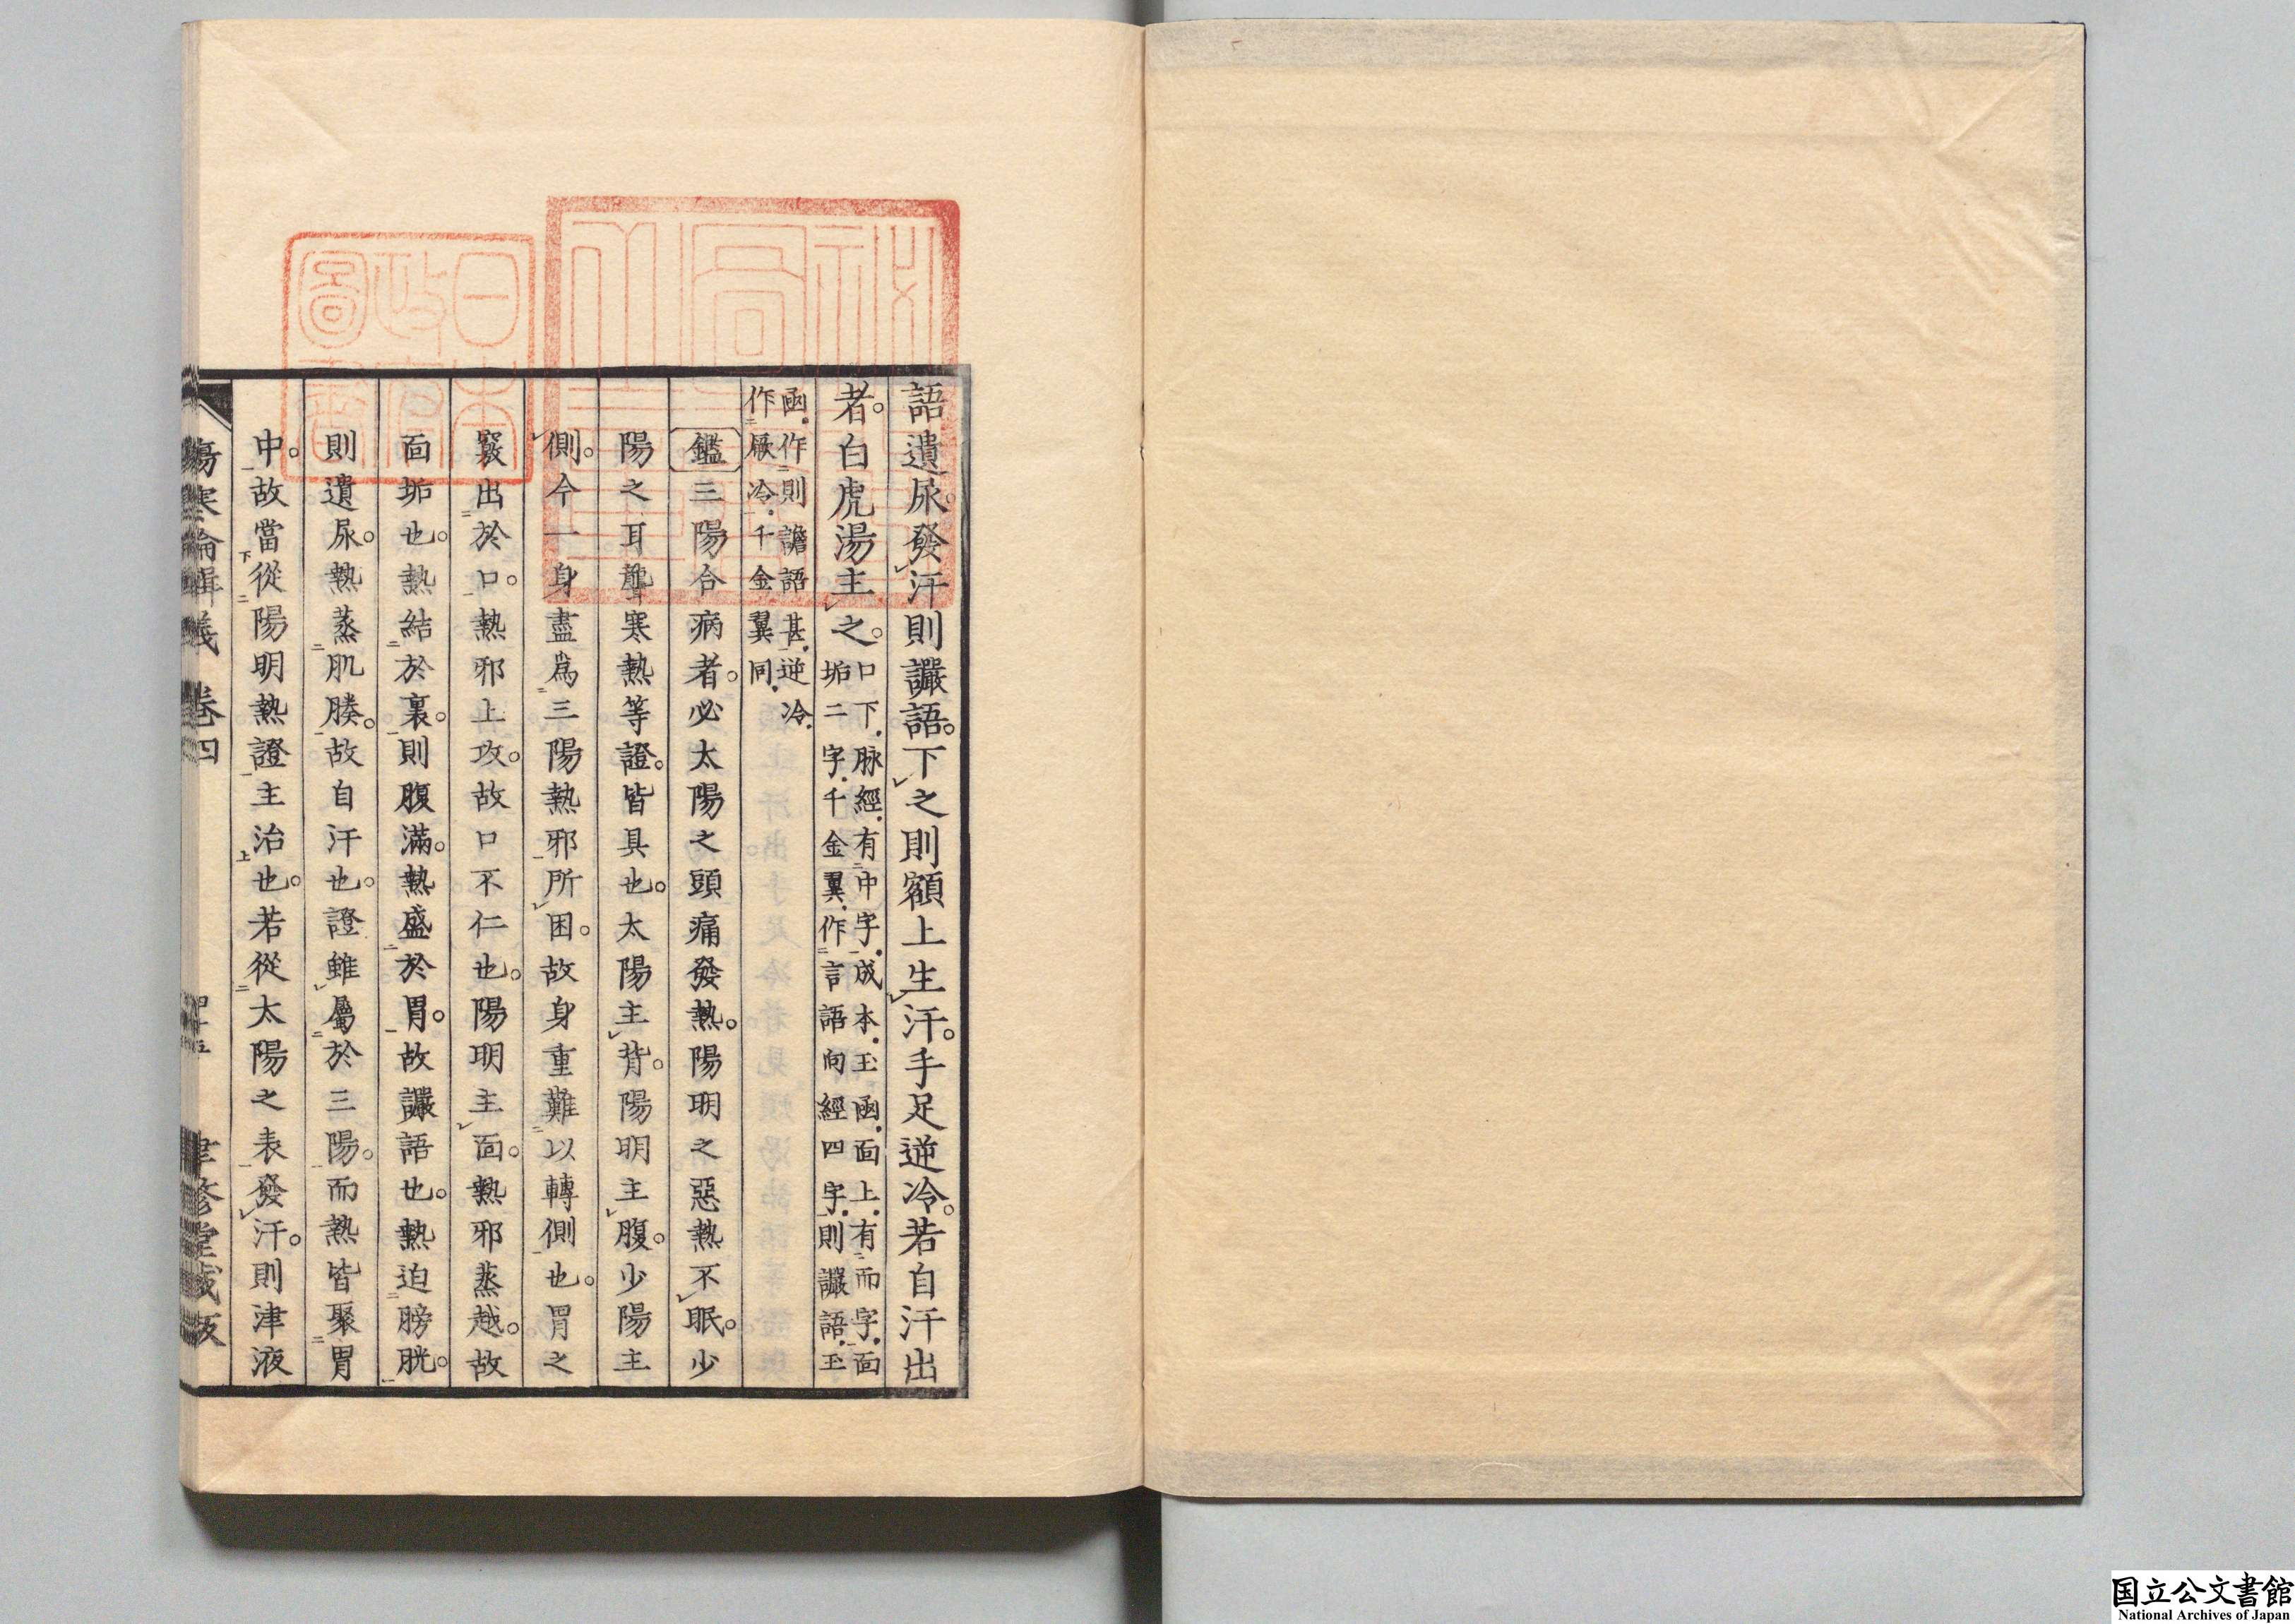 語遺尿。發汗則讝語。下之則額上生汗。手足逆冷。若自汗出
者。白虎湯主之。口下。脉經。有中字。成本。玉函。面上。有而字。面
垢二字。千金翼。作言語向經四字。則讝語。玉
函。作則譫語甚。逆冷。
作厥冷。千金翼同。
鑑三陽合病者。必太陽之頭痛發熱。陽明之惡熱不眠。少
陽之耳聾寒熱等證。皆具也。太陽主背。陽明主腹。少陽主
側。今一身盡爲三陽熱邪所困。故身重難以轉側也。胃之
竅出於口。熱邪上攻。故口不仁也。陽明主面。熱邪蒸越。故
面垢也。熱結於裏。則腹滿。熱盛於胃。故讝語也。熱迫膀胱。
則遺尿。熱蒸肌腠。故自汗也。證雖屬於三陽。而熱皆聚胃
中。故當從陽明熱證主治也。若從太陽之表發汗。則津液
傷寒論輯義 卷四 聿修堂藏版
日本政府圖書
国立公文書館
National Archives of Japan